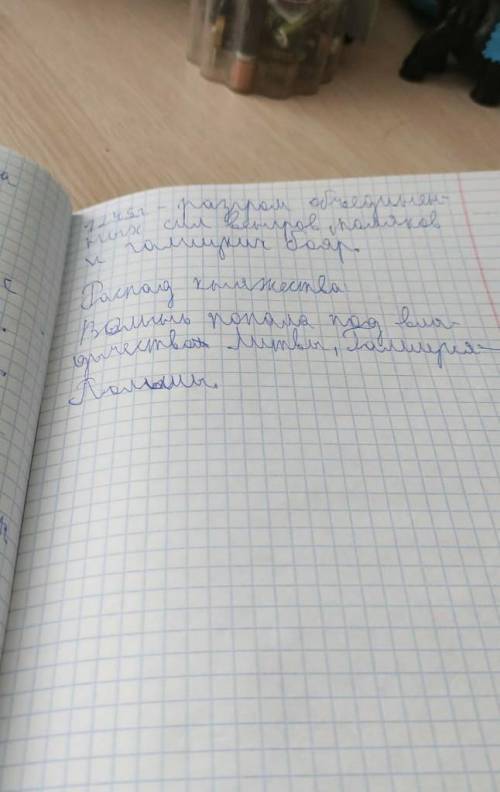 1245г - разгром объединен-
ных сил венгров, поляков
и галицких бояр.
Распад княжества
Волынь попала под вла-
дычество Литвы, Галиция-
Польши.